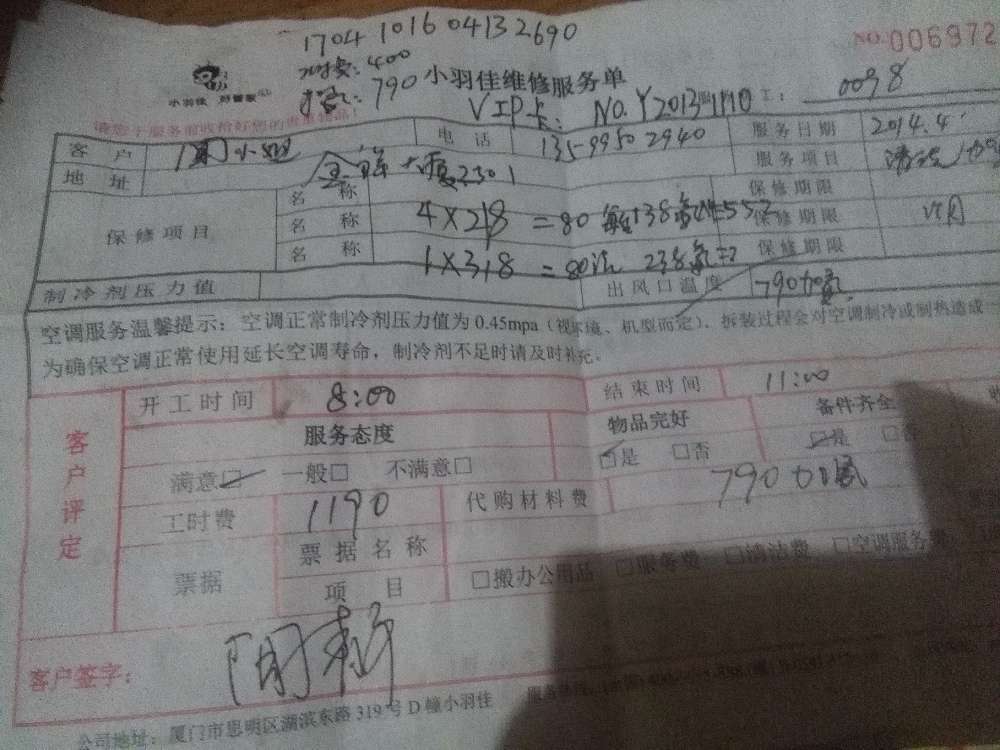 1704 1016 0413 2690
NO. 006972
工时费:400
790 小羽佳维修服务单
小羽佳
VIP卡: NO.Y2013 工: 0098
客户 小姐 电话 135 9950 2940 服务日期 2014.4
地址 大厦2301 服务项目 清洗
保修项目
名称 保修期限
名称 4×218 = 80 +38 =552 保修期限
名称 1×318 = 80 238 保修期限
制冷剂压力值 出风口温度 790加氟
空调服务温馨提示: 空调正常制冷剂压力值为 0.45mpa (视环境、机型而定), 拆装过程会对空调制冷或制热造成一
为确保空调正常使用延长空调寿命, 制冷剂不足时请及时补充。
客户评定
开工时间 8:00 结束时间 11:00
服务态度 物品完好 备件齐全
满意□ 一般□ 不满意□ □是 □否 □是 □否
工时费 1190 代购材料费 790加氟
票据 票据名称
项目 □搬办公用品 □服务费 □清洁费 □空调服务费
客户签字:
公司地址: 厦门市思明区湖滨东路 319 号 D 幢小羽佳